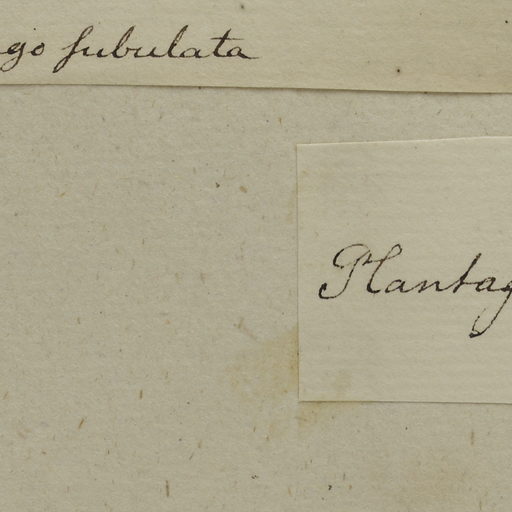 go subulata
Plantag